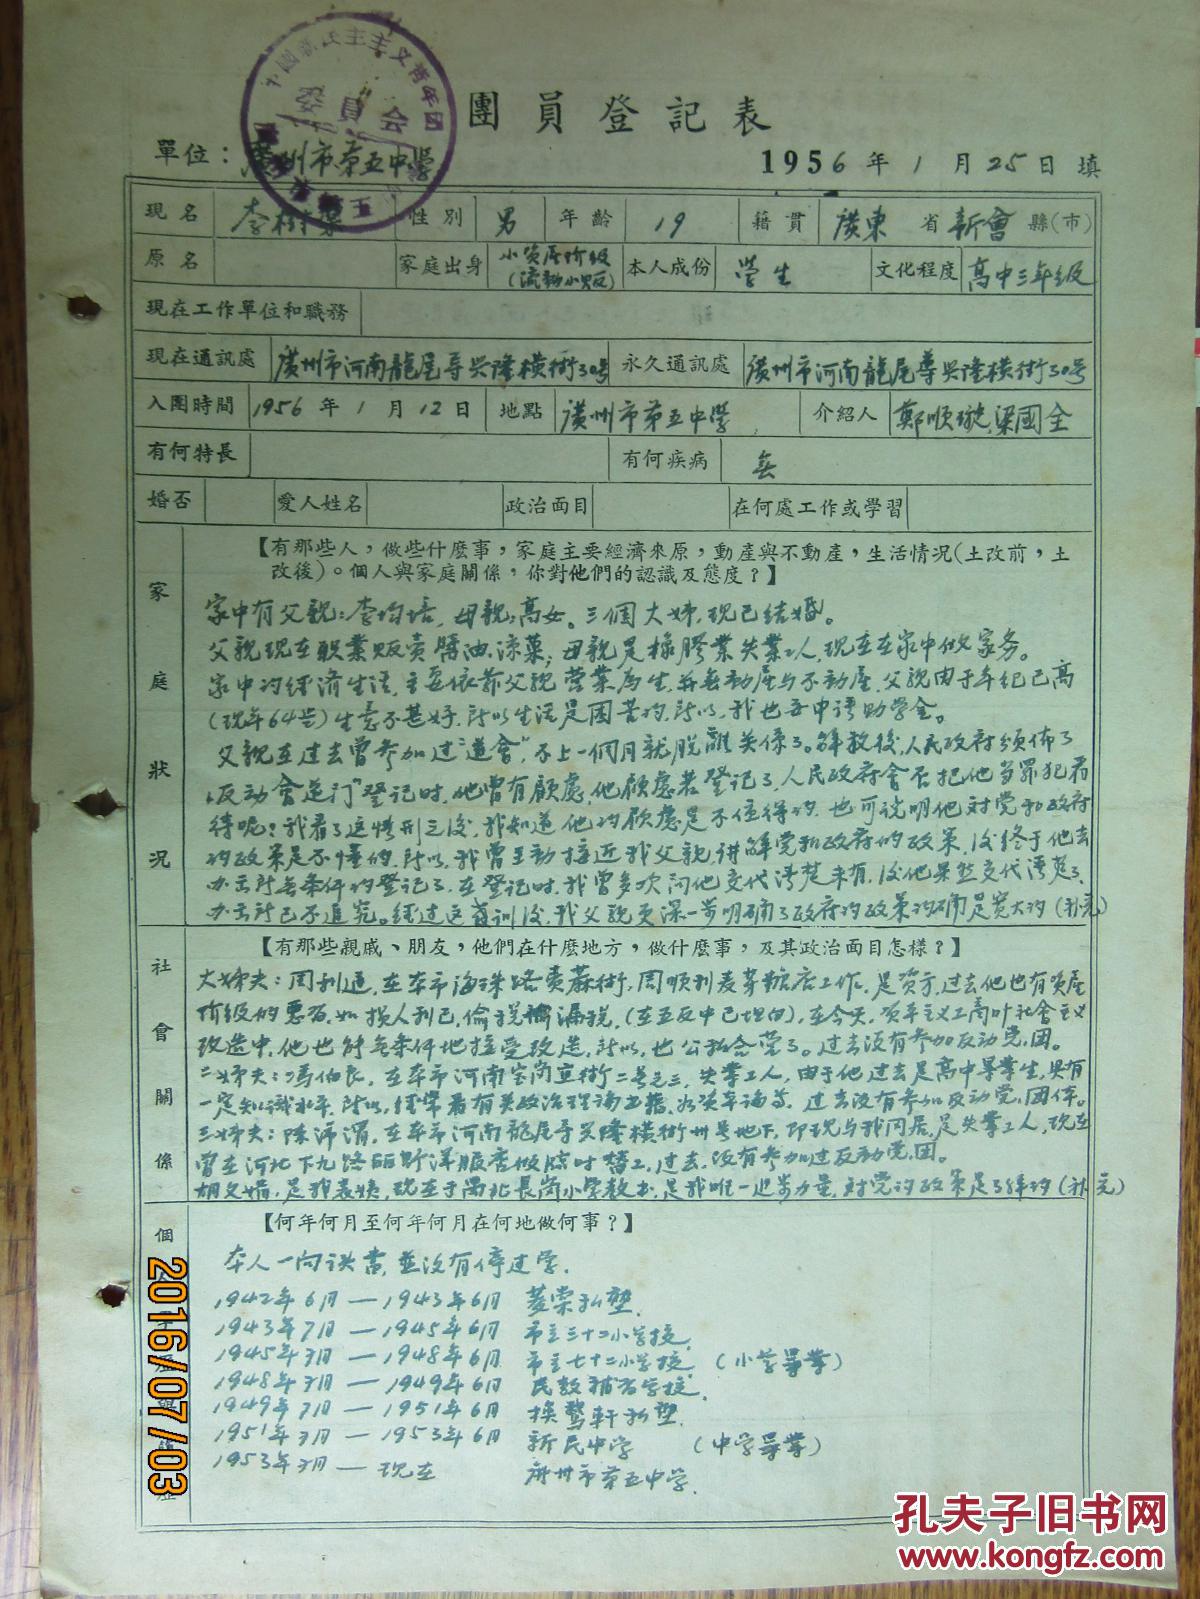 團員登記表
單位：廣州市第五中學
1956年1月25日填
現名 李樹 性別 男 年齡 19 籍貫 廣東省新會縣(市)
原名 家庭出身 小資產階級(流動小販) 本人成份 學生 文化程度 高中三年級
現在工作單位和職務
現在通訊處 廣州市河南龍尾導興隆橫街30号 永久通訊處 廣州市河南龍尾導興隆橫街30号
入團時間 1956年1月12日 地點 廣州市第五中學 介紹人 鄭順璇、梁國全
有何特長 有何疾病 無
婚否 愛人姓名 政治面目 在何處工作或學習
家庭狀况
【有那些人，做些什麽事，家庭主要經濟來原，動產與不動產，生活情况(土改前，土
改後)。個人與家庭關係，你對他們的認識及態度？】
家中有父親：李均培，母親：高女。三個大姊，現已结婚。
父親現在職業贩賣醬油、涼菓；母親是橡膠業失業工人，現在在家中做家务。
家中的经濟生活，主要依靠父親营業為生，并無動產与不動產，父親由于年纪已高
(現年64岁)生意不甚好，所以生活是困苦的，所以，我也要申请助学金。
父親在过去曾参加过"道會"，不上一個月就脱離关係了。解放後，人民政府颁佈了
"反动會道门"登记时，他曾有顧慮，他顧慮若登记了，人民政府會否把他当罪犯看
待呢？我看了这情形之後，我知道他的顧慮是不值得的，也可说明他对党和政府
的政策是不懂的，所以，我曾主動接近我父親，讲解党和政府的政策，後终于他去
办事所無条件的登记了，在登记时，我曾多次问他交代清楚未有，後他果然交代清楚了，
办事所已不追究。经过这教训後，我父親更深一步明确了政府的政策的确是宽大的(补充)
社會關係
【有那些親戚、朋友，他們在什麽地方，做什麽事，及其政治面目怎樣？】
大姊夫：周利通，在本市海珠路賣蔴街，周順利麦芽糖店工作，是资方，过去他也有资產
阶级的惡習，如损人利己，偷税漏税，(在五反中已坦白)，在今天，资本主义工商业社會主义
改造中，他也能無条件地接受改造，所以，也公私合营了。过去没有参加反动党、团。
二姊夫：冯伯良，在本市河南宝岗直街二巷之三，失業工人，由于他过去是高中畢業生，具有
一定知識水平，所以，经常看有关政治理論书籍，如资本論等，过去没有参加反动党、團体。
三姊夫：陈沛渭，在本市河南龍尾导兴隆橫街卅号地下，即现与我同居，是失業工人，现在
曾在河北下九路丽斯洋服店做臨时替工，过去，没有参加过反动党、团。
胡文娟，是我表姨，现在于禺北長崗小学教书，是我唯一进步力量，对党的政策是了解的(补充)
【何年何月至何年何月在何地做何事？】
本人一向读書，並没有停过学。
1942年6月—1943年6月 菱棠私塾。
1943年7月—1945年6月 市立三十二小学校。
1945年7月—1948年6月 市立七十二小学校。(小学畢業)
1948年7月—1949年6月 民教補習学校。
1949年7月—1951年6月 换鵞軒私塾。
1951年7月—1953年6月 新民中学 (中学畢業)
1953年7月—现在 广州市第五中学。
委員会
2016/07/03
孔夫子旧书网
www.kongfz.com